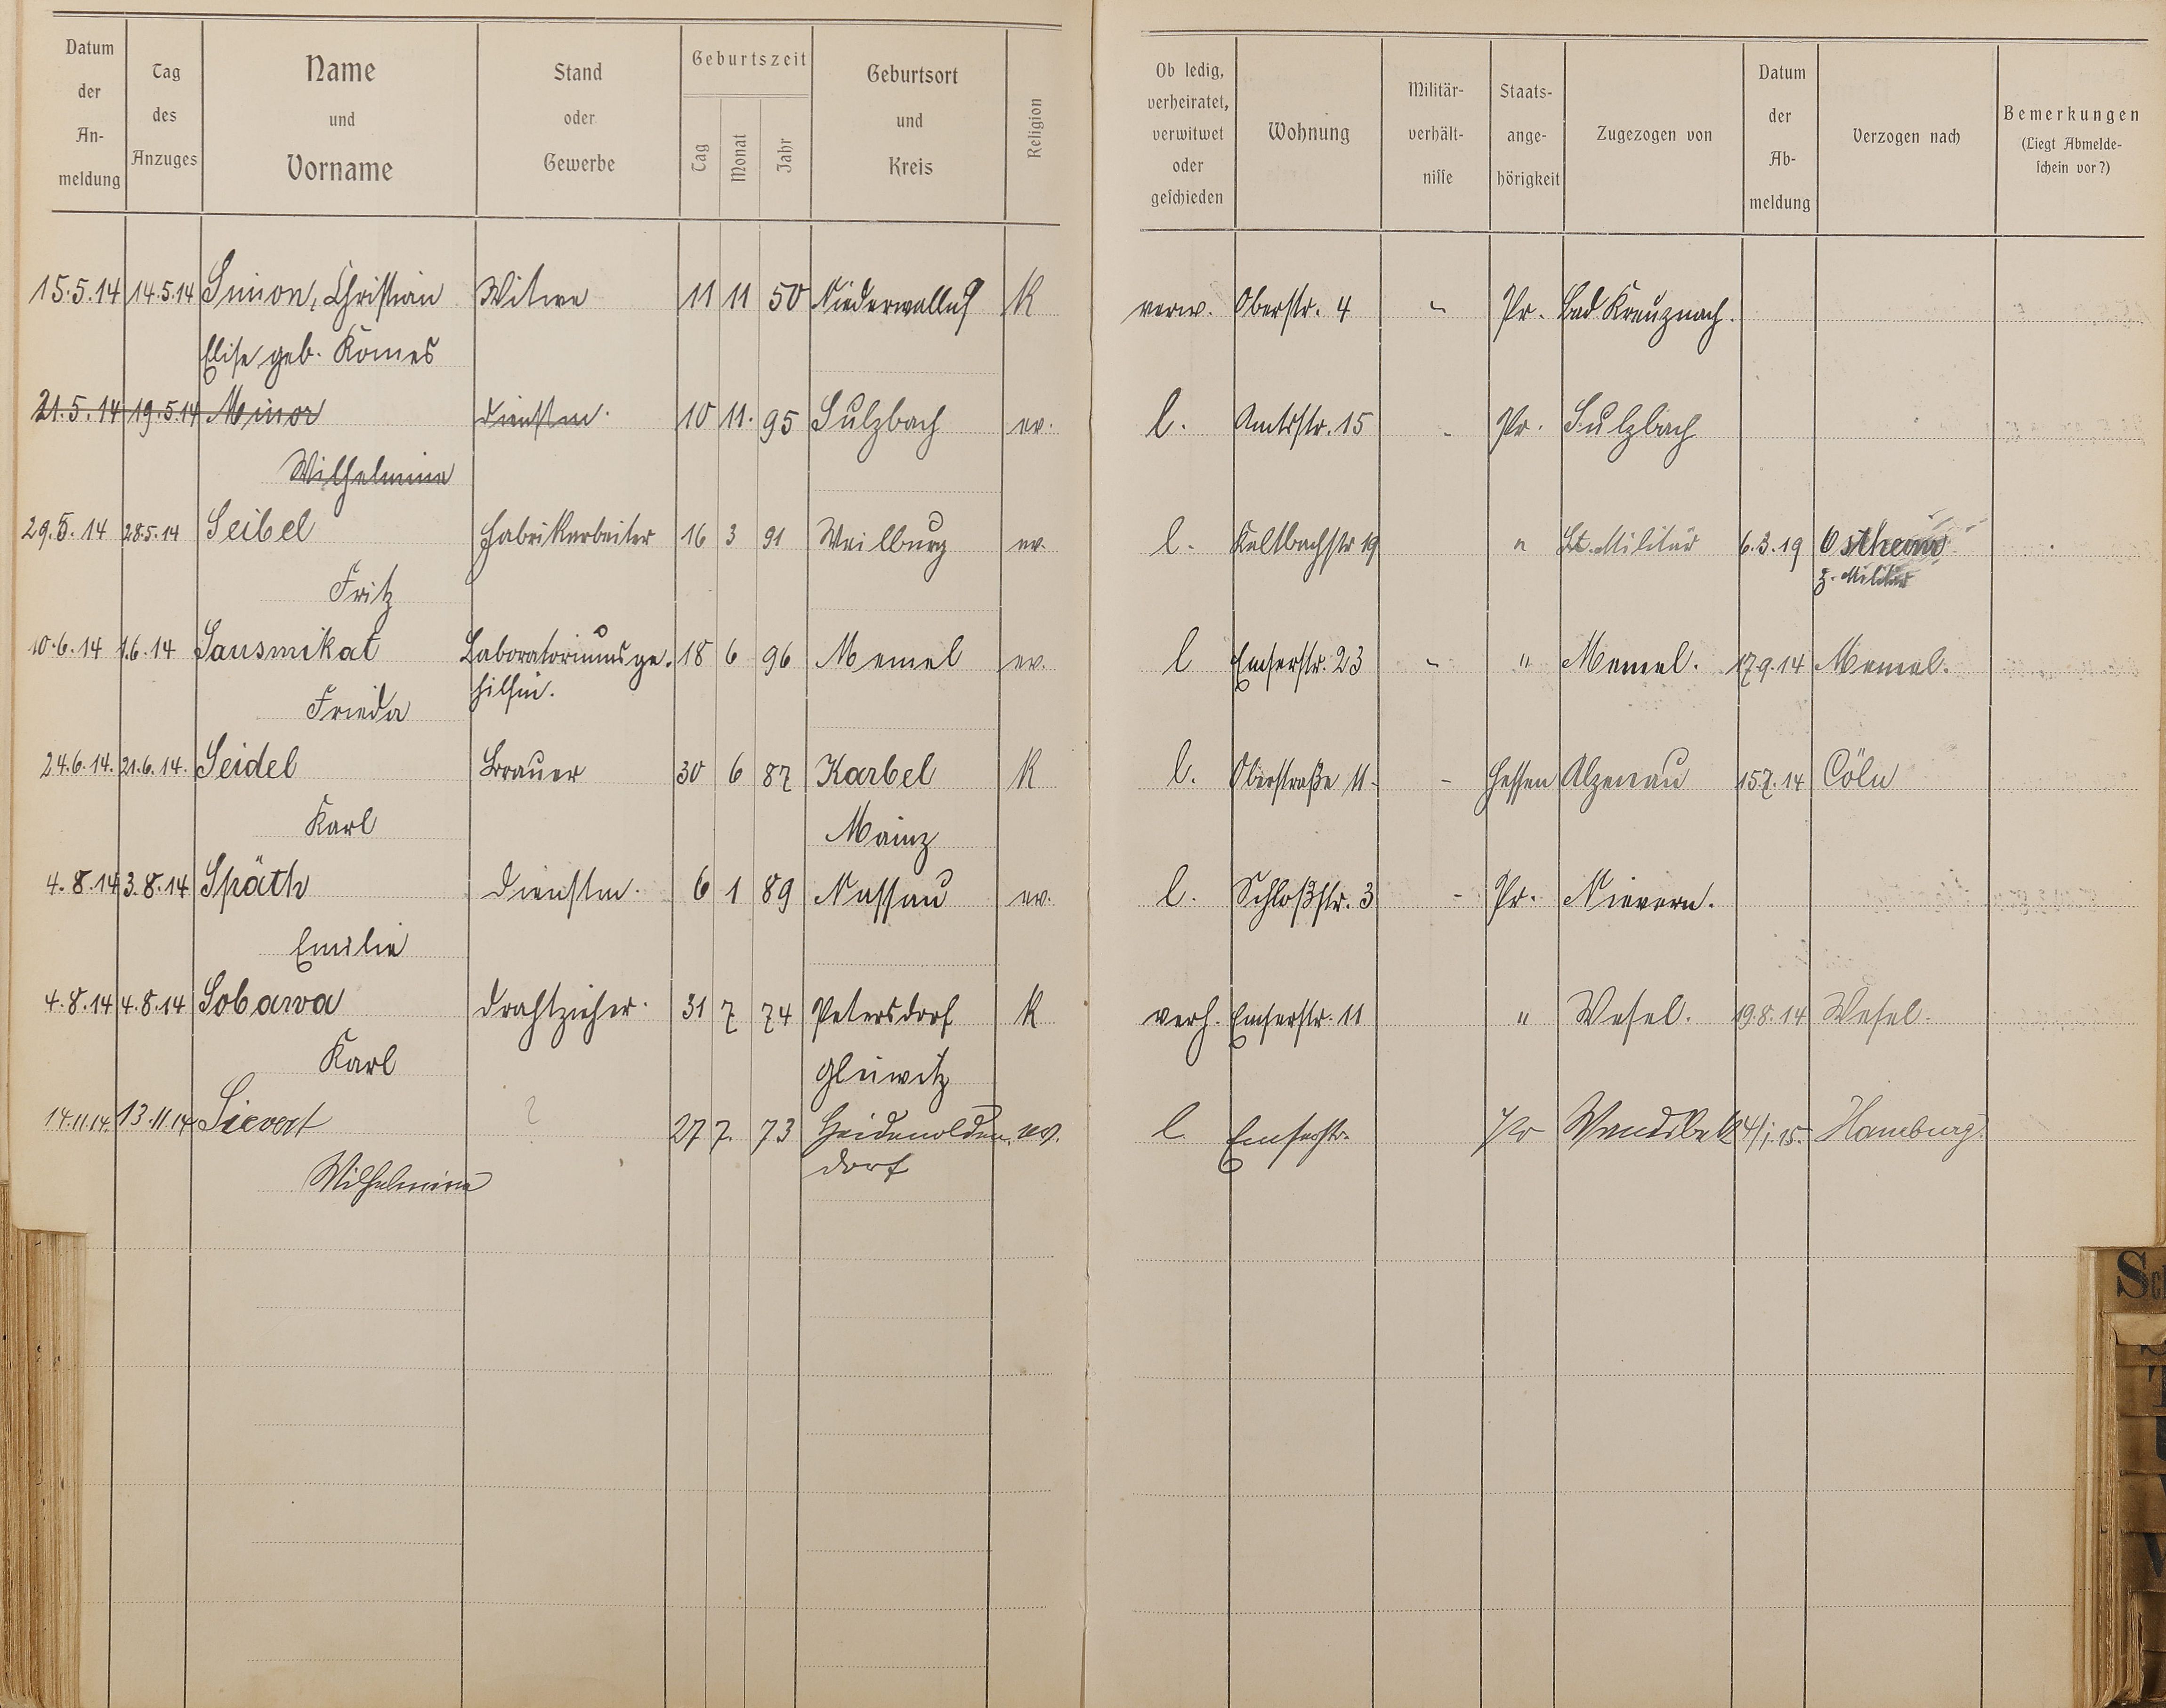 Datum der An- meldung | Tag des Anzuges | Name und Vorname | Stand oder Gewerbe | Geburtszeit Tag Monat Jahr | Geburtsort und Kreis | Religion | Ob ledig, verheiratet, verwitwet oder geschieden | Wohnung | Militär- verhält- nisse | Staats- ange- hörigkeit | Zugezogen von | Datum der Ab- meldung | Verzogen nach | Bemerkungen (Liegt Abmelde- schein vor?)
15.5.14 14.5.14 Simon, Christian Witwe 11 11 50 Niederwalluf K verw. Oberstr. 4 - Pr. Bad Kreuznach.
Elise geb. Komes
21.5.14 19.5.14 Minor Dienstm. 10 11. 95 Sulzbach ev. l. Amtsstr. 15 - Pr. Sulzbach
Wilhelmine
29.5.14 28.5.14 Seibel Fabrikarbeiter 16 3 91 Weilburg ev. l. Kaltbachstr 19 " Militär 6.3.19 Ostheim
Fritz z. Militär
10.6.14 1.6.14 Sausmikat Laboratoriumsge- 18 6 96 Memel ev. l Emserstr. 23 - " Memel. 17.9.14 Memel.
Frieda hilfin.
24.6.14. 21.6.14. Seidel Brauer 30 6 87 Karbel K l. Oberstraße 11 - - Hessen Alzenau 15.7.14 Cöln
Karl Mainz
4.8.14 3.8.14 Späth Dienstm. 6 1 89 Nassau ev. l. Schloßstr. 3 - Pr. Nievern.
Emilie
4.8.14 4.8.14 Sobawa Drahtzieher. 31 7 74 Petersdorf K verh. Emserstr. 11 " Wesel. 19.8.14 Wesel.
Karl Gleiwitz
14.11.14. 13.11.14 Sievert ? 27 7. 73 Heidenolden- ev. l Emserstr. Pr Wandsbek 4/1.15. Hamburg.
Wilhelmine dorf